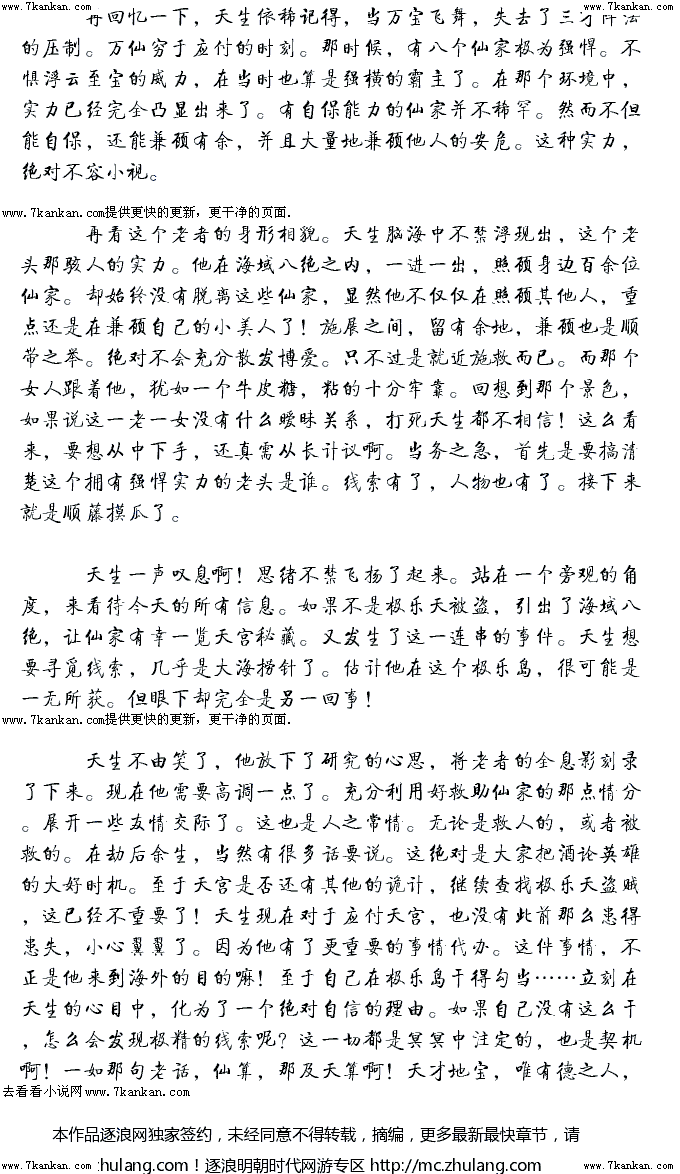 www.7kankan.com 去看看小说网 www.7kankan.com
再回忆一下，天生依稀记得，当万宝飞舞，失去了三才阵法
的压制。万仙穷于应付的时刻。那时候，有八个仙家极为强悍。不
惧浮云至宝的威力，在当时也算是强横的霸主了。在那个环境中，
实力已经完全凸显出来了。有自保能力的仙家并不稀罕。然而不但
能自保，还能兼顾有余，并且大量地兼顾他人的安危。这种实力，
绝对不容小视。
www.7kankan.com提供更快的更新，更干净的页面.
再看这个老者的身形相貌。天生脑海中不禁浮现出，这个老
头那骇人的实力。他在海域八绝之内，一进一出，照顾身边百余位
仙家。却始终没有脱离这些仙家，显然他不仅仅在照顾其他人，重
点还是在兼顾自己的小美人了！施展之间，留有余地，兼顾也是顺
带之举。绝对不会充分散发博爱。只不过是就近施救而已。而那个
女人跟着他，犹如一个牛皮糖，粘的十分牢靠。回想到那个景色，
如果说这一老一女没有什么暧昧关系，打死天生都不相信！这么看
来，要想从中下手，还真需从长计议啊。当务之急，首先是要搞清
楚这个拥有强悍实力的老头是谁。线索有了，人物也有了。接下来
就是顺藤摸瓜了。
天生一声叹息啊！思绪不禁飞扬了起来。站在一个旁观的角
度，来看待今天的所有信息。如果不是极乐天被盗，引出了海域八
绝，让仙家有幸一览天宫秘藏。又发生了这一连串的事件。天生想
要寻觅线索，几乎是大海捞针了。估计他在这个极乐岛，很可能是
一无所获。但眼下却完全是另一回事！
www.7kankan.com提供更快的更新，更干净的页面.
天生不由笑了，他放下了研究的心思，将老者的全息影刻录
了下来。现在他需要高调一点了。充分利用好救助仙家的那点情分
。展开一些友情交际了。这也是人之常情。无论是救人的，或者被
救的。在劫后余生，当然有很多话要说。这绝对是大家把酒论英雄
的大好时机。至于天宫是否还有其他的诡计，继续查找极乐天盗贼
，这已经不重要了！天生现在对于应付天宫，也没有此前那么患得
患失，小心翼翼了。因为他有了更重要的事情代办。这件事情，不
正是他来到海外的目的嘛！至于自己在极乐岛干得勾当……立刻在
天生的心目中，化为了一个绝对自信的理由。如果自己没有这么干
，怎么会发现极精的线索呢？这一切都是冥冥中注定的，也是契机
啊！一如那句老话，仙算，那及天算啊！天才地宝，唯有德之人，
去看看小说网www.7kankan.com
本作品逐浪网独家签约，未经同意不得转载，摘编，更多最新最快章节，请
www.7kankan.com zhulang.com！逐浪明朝时代网游专区 http://mc.zhulang.com www.7kankan.com